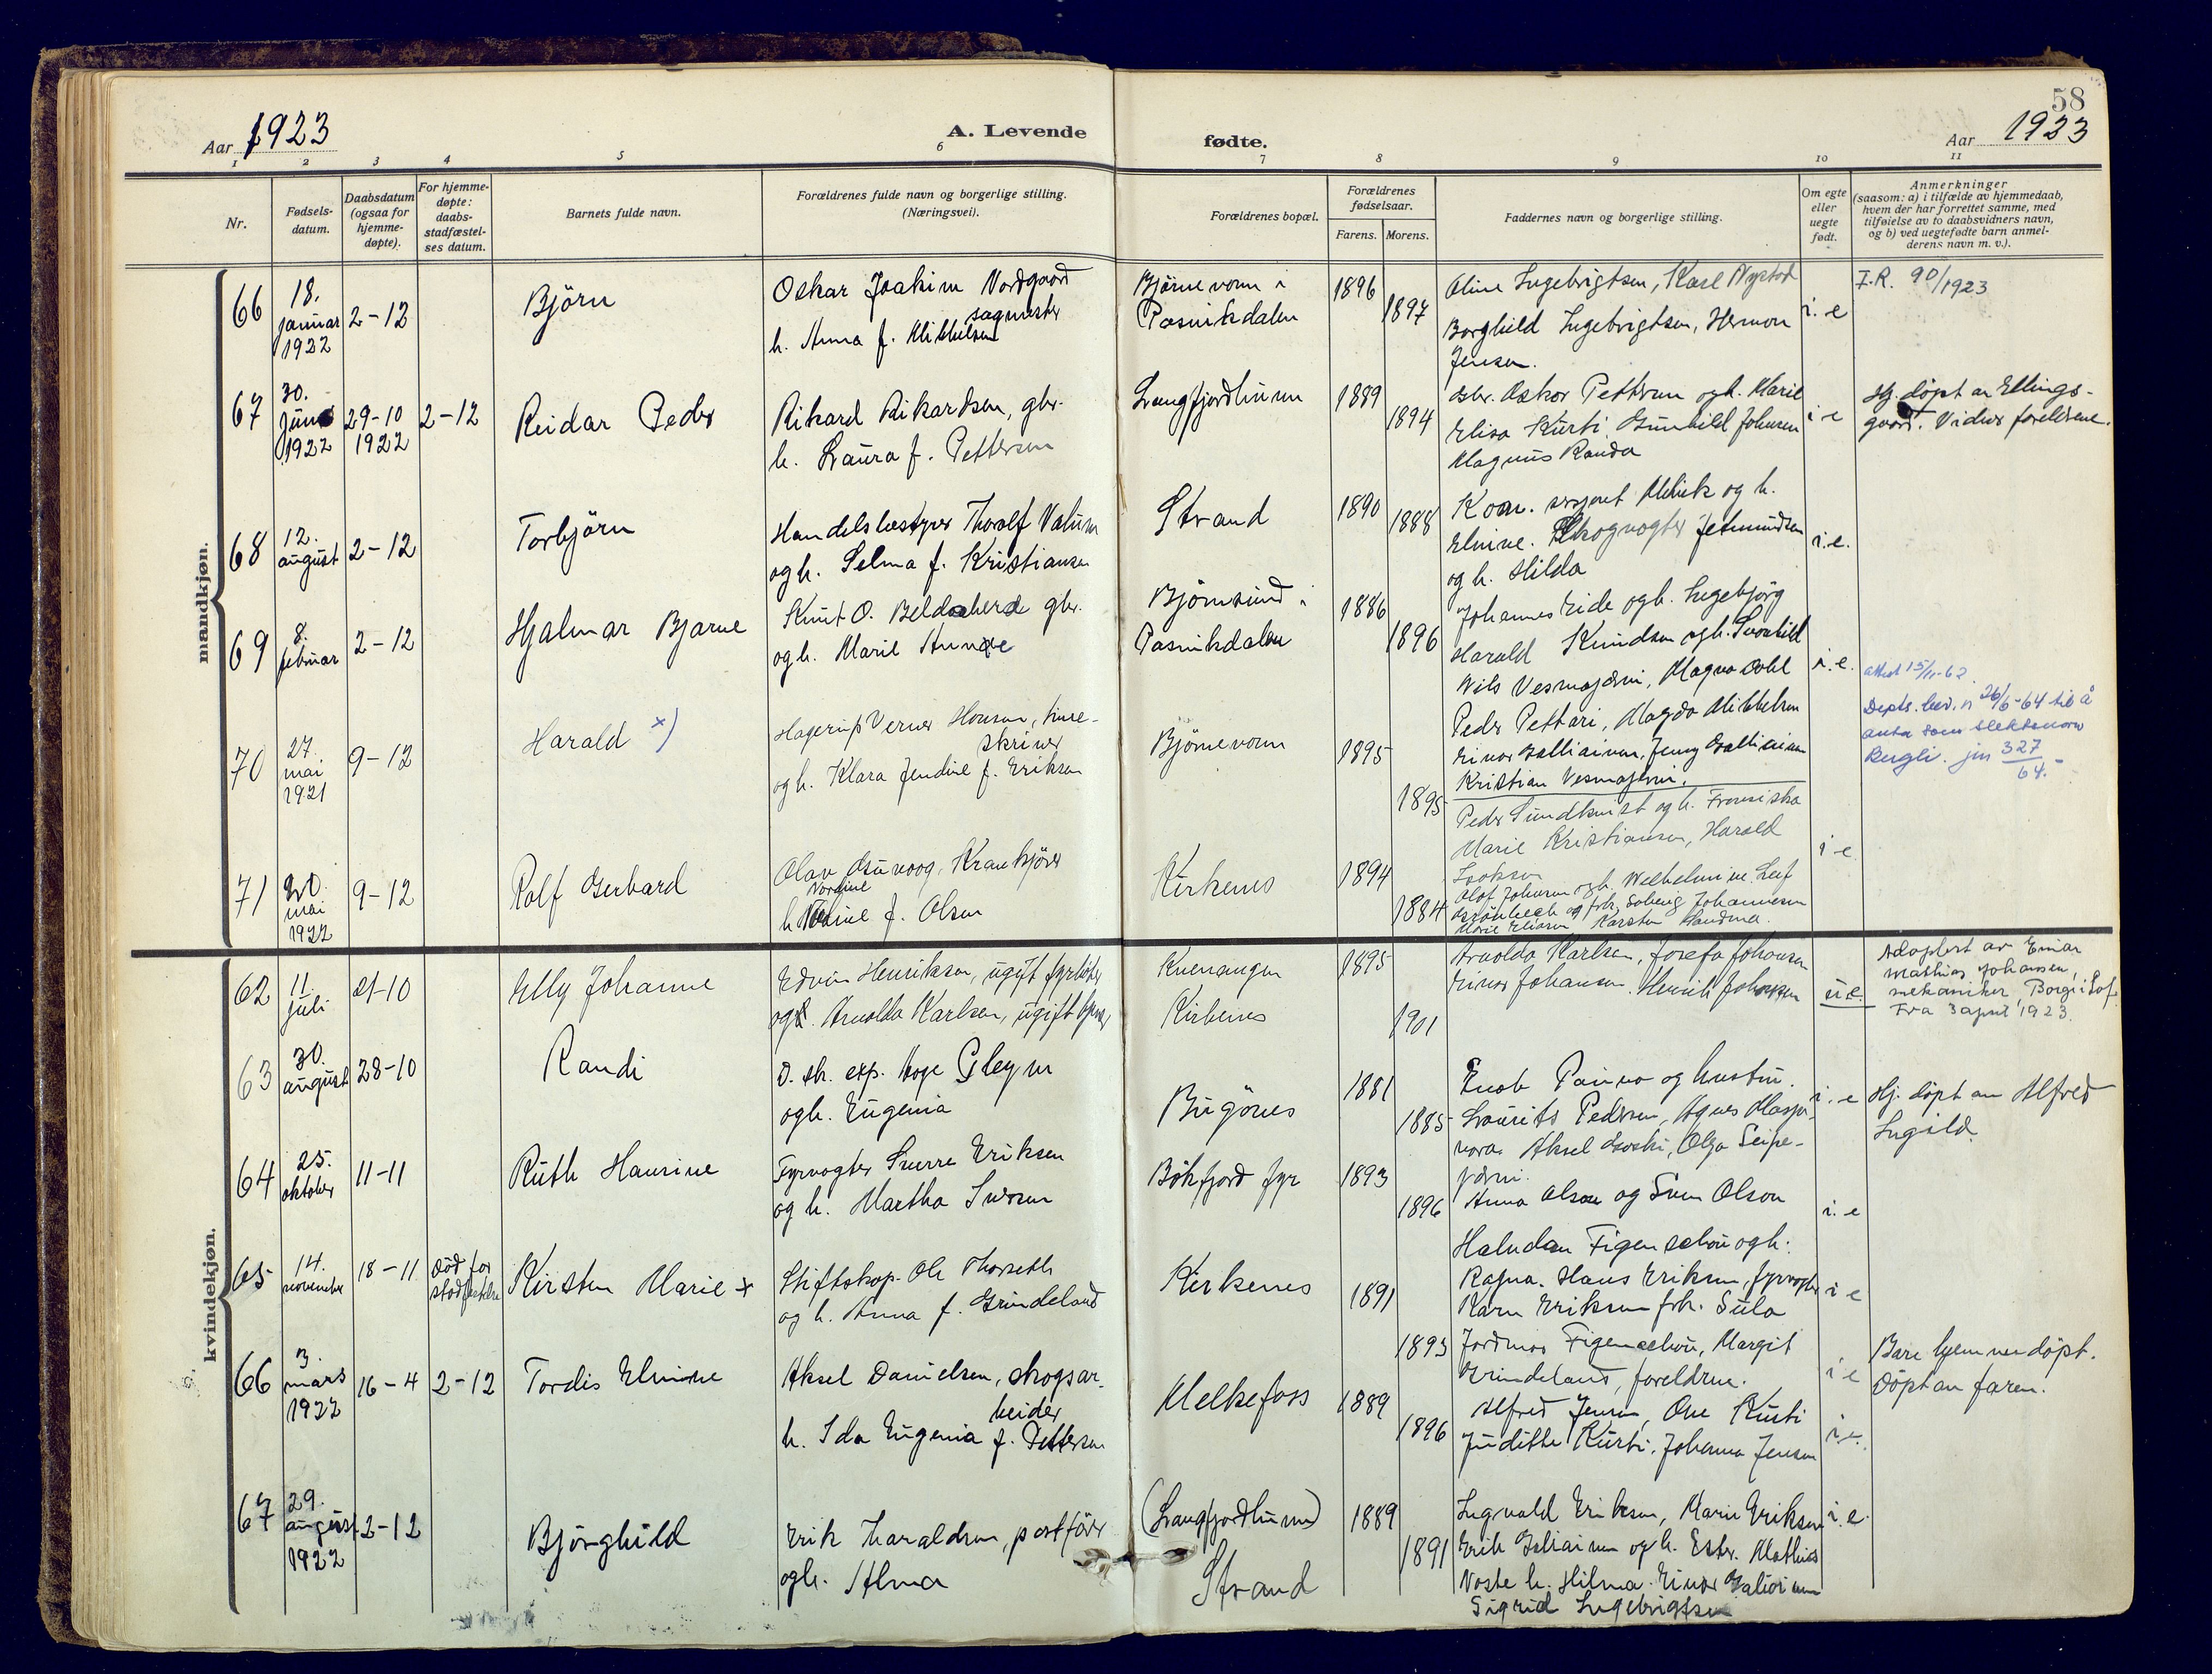 58
Aar 1923
A. Levende
fødte.
Aar 1923
1 2 3 4 5 6 7 8 9 10 11
Nr.
Fødsels-
datum.
Daabsdatum
(ogsaa for
hjemme-
døpte).
For hjemme-
døpte:
daabs-
stadfæstel-
ses datum.
Barnets fulde navn.
Forældrenes fulde navn og borgerlige stilling.
(Næringsvei).
Forældrenes bopæl.
Forældrenes
fødselsaar.
Farens. Morens.
Faddernes navn og borgerlige stilling.
Om egte
eller
uegte
født.
Anmerkninger
(saasom: a) i tilfælde av hjemmedaab,
hvem der har forrettet samme, med
tilføielse av to daabsvidners navn,
og b) ved uegtefødte barn anmel-
derens navn m. v.).
mandkjøn.
66
18.
januar
1922
2-12
Björn
Oskar Joakim Nordgaard
sagmester
h. Anna f. Mikkelsen
Björnevann i
Pasvikdalen
1896
1897
Oline Ingebrigtsen, Karl Nystad
Borghild Ingebrigtsen, Herman
Jensen.
i. e
I.R. 90/1923
67
30.
Juni
1922
29-10
1922
2-12
Reidar Peder
Rikard Rikardsen, gbr.
h. Laura f. Pettersen
Langfjordbunn
1889
1894
Gbr. Oskar Pettersen og h. Marie
Elisa Kurti. Gunhild Johnsen
Magnus Randa
i e
Hj. döpt av Ellings-
gaard. Vidner foreldrene.
68
12.
august
2-12
Torbjörn
Handelsbestyrer Thoralf Valum
og h. Selma f. Kristiansen
Strand
1890
1888
Kom. sersjant Melvik og h.
Elvine. Skogvogter Jetmundsen
og h. Hilda
i.e.
69
8.
februar
2-12
Hjalmar Bjarne
Knut O. gbr.
og h. Marie
Björnsund i
Pasvikdalen
1886
1896
Johannes Eide og h. Ingebjörg
Harald Knudsen og h. Svanhild
Nils Vesmajervi, Magna Dahl
i. e.
70
27.
mai
1921
9-12
Harald x)
Hagerup Verner Hansen, time-
skriver
og h. Klara Jendine f. Eriksen
Björnevann
1895
1895
Peder Pettari, Magda Mikkelsen
Einar Galliainen, Jenny Galliainen
Kristian Vesmajervi.
attest 15/11-62.
Depts. bev. av 26/6-64 til å
anta som slektsnavn
Rugli. jnr 327
64.
71
20.
mai
1922
9-12
Rolf Gerhard
Olav Asuvoog, Krankjörer
Nordine
h f. Olsen
Kirkenes
1894
1884
Peder Sundkvist og h. Fransiska
Marie Kristiansen, Harald
Isaksen
Olaf Johnsen og h. Wilhelmine. Leif
og frk. Solveig Johannesen
Marie Eliasen Karsten Sandmo.
i e
kvindekjøn.
62
11.
juli
21-10
Elly Johanne
Edvin Henriksen, ugift fyrböter
og Arnolda Karlsen, ugift tjener
Kvenangen
Kirkenes
1895
1901
Arnolda Karlsen, Josefa Johansen
Einar Johansen. Henrik Johansen
u e.
Adoptert av Einar
Mathias Johansen,
mekaniker, Borge i Lof.
Fra 3 april 1923.
63
30.
august
28-10
Randi
D. sk. exp. Aage Gleym
og h. Eugenia
Bugönes
1881
1885
Enok Painva og hustru.
Laurits Pedersen, Agnes Masja-
vara Aksel Koski, Olga Seipe-
jærvi.
i. e
Hj. döpt av Alfred
Ingild.
64
25.
oktober
11-11
Ruth Hansine
Fyrvogter Sverre Eriksen
og h. Martha Iversen
Bökfjord fyr
1893
1896
Anna Olsen og Sven Olsen
Halvdan Figenschou og h.
Ragna. Hans Eriksen, fyrvogter
Karen Eriksen frk. Sula
i. e
65
14.
november
18-11
död for
stadfestelse
Kirsten Marie x
Stiftskap. Ole Thorseth
og h. Anna f. Grindeland
Kirkenes
1891
1893
Jordmor Figenschou, Margit
Grindeland, foreldrene.
i e
66
3.
mars
1922
16-4
2-12
Tordis Elvine
Aksel Danielsen, skogsar-
beider
h. Ida Eugenia f. Pettersen
Melkefoss
1889
1896
Alfred Jensen, Ove Kurti
Juditte Kurti, Johanna Jensen
i e
i. e.
Bare hjemmedöpt.
Döpt av faren.
67
29.
august
1922
2-12
Björghild
Erik Haraldsen, postförer
og h. Alma
(Langfjordbunn)
Strand
1889
1891
Ingvald Eriksen, Marie Eriksen
Erik Galiainen og h. Ester. Mathias
Naste h. Hilma. Einar Galiainen
Sigrid Ingebrigtsen
i. e.